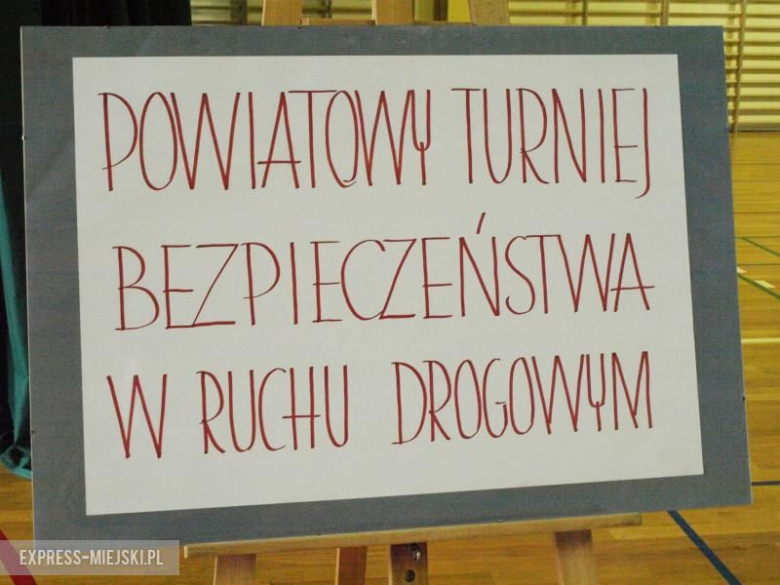 POWIATOWY TURNIEJ
BEZPIECZEŃSTWA
W RUCHU DROGOWYM
EXPRESS-MIEJSKI.PL